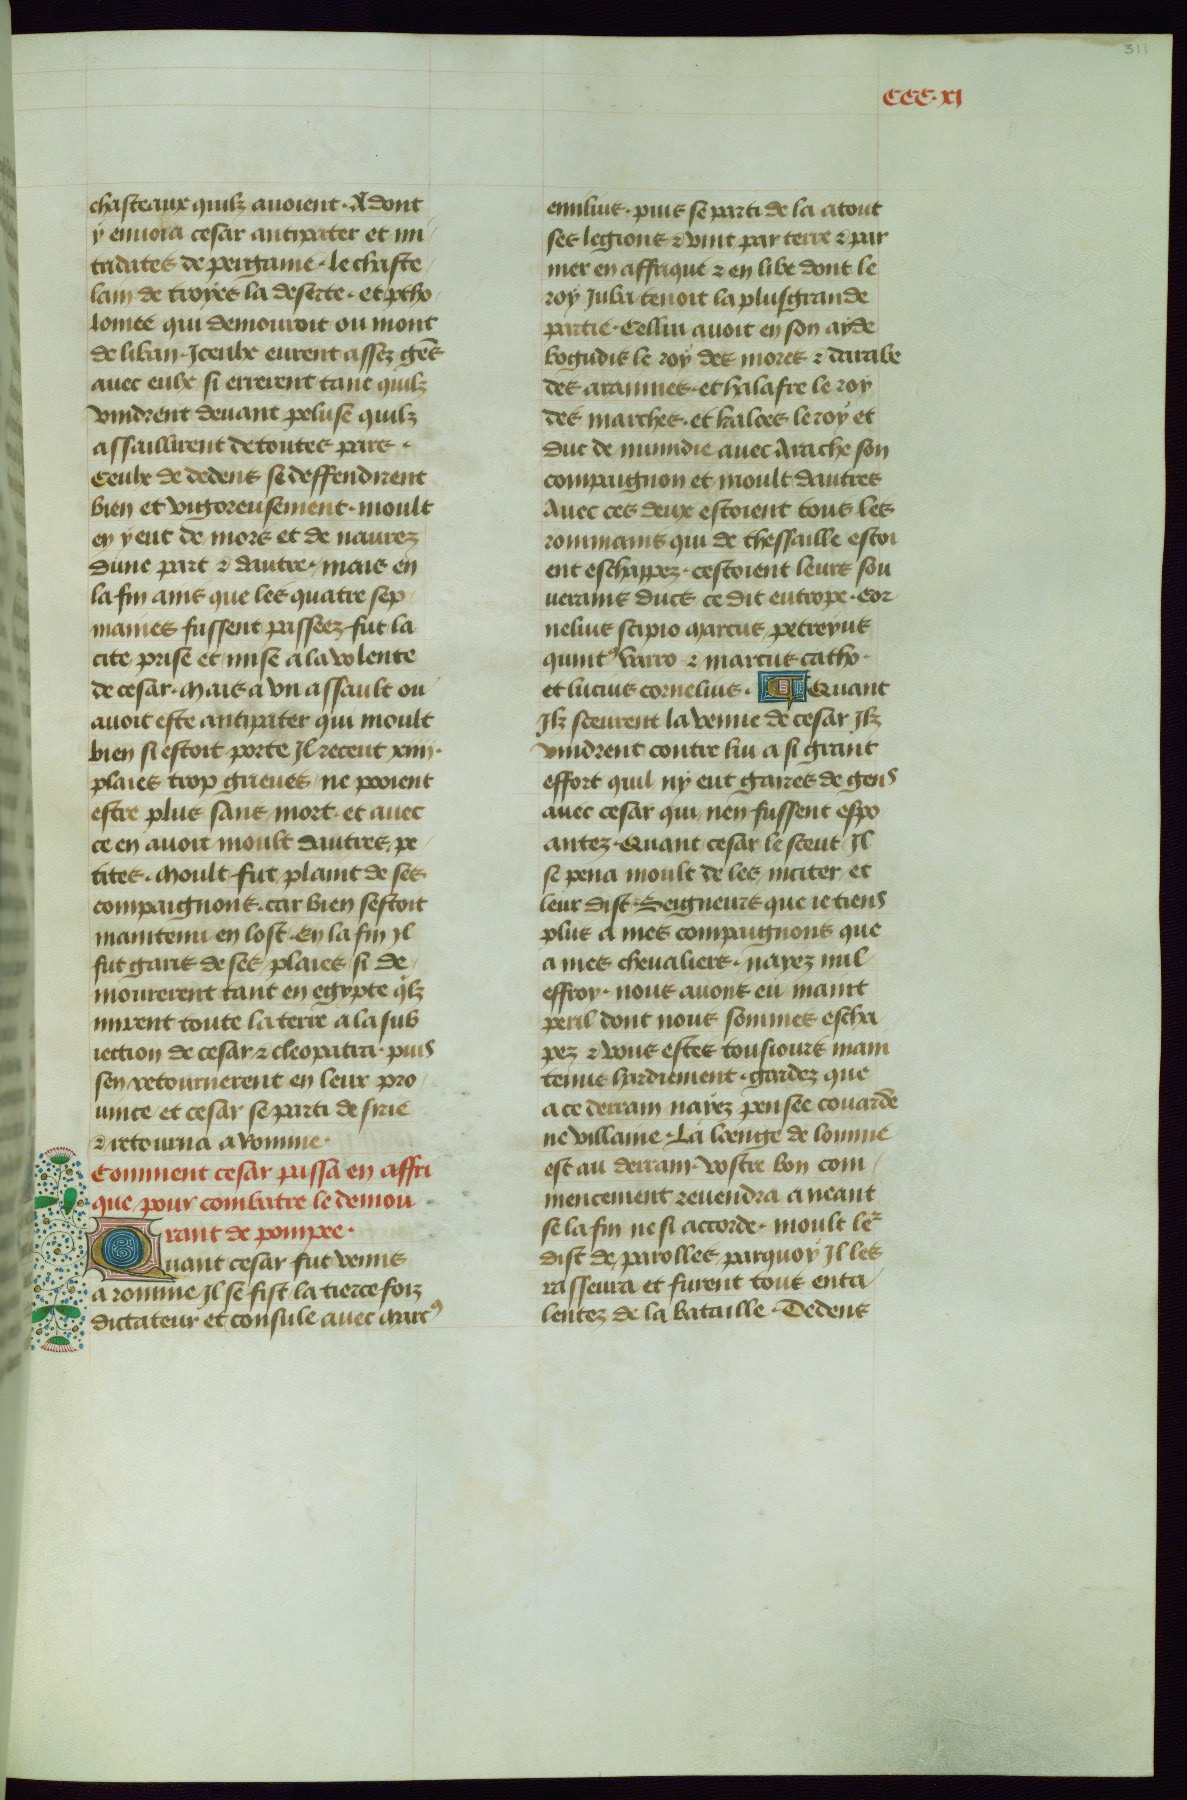 311
CCC·xj
chasteaux quilz auoient· Adont
y enuoia cesar antipater et mi
tridates de pergame· le chaste
lain de troyes la deserte· et ptho
lomee qui demouroit ou mont
de liban· Iceulx eurent assez ge͂s
auec eulx si errerent tant quilz
vindrent deuant peluse quilz
assaillirent de toutes pars·
Ceulx de dedens se deffendirent
bien et vigoreusement· moult
en y eut de mors et de naurez
dune part ⁊ dautre· mais en
la fin ains que les quatre sep
maines fussent passeez fut la
cite prise et mise a la volente
de cesar· Mais a vn assault ou
auoit este antipater qui moult
bien si estoit porte Il receut xiiij·
plaies trop grieues ne pooient
estre plus sans mort· et auec
ce en auoit moult dautres pe
tites· Moult fut plaint de ses
compaignons· car bien sestoit
maintenu en lost· En la fin Il
fut garis de ses plaies si de
mourerent tant en egypte qͥlz
mirent toute la terre a la sub
iection de cesar ⁊ cleopatra· puis
sen retournerent en leur pro
uince et cesar se parti de sirie
⁊ retourna a Romme·
Comment cesar passa en affri
que pour combatre le demou
rant de pompee·
Quant cesar fut venus
a romme Il se fist la tierce foiz
dictateur et consule auec marcꝰ
emilius· puis se parti de la atout
ses legions ⁊ vint par terre ⁊ par
mer en affrique ⁊ en libe dont le
roy Juba tenoit la plusgrande
partie· Cellui auoit en son ayde
bogudis le roy des mores ⁊ darabe
des arannes· et halafre le roy
des marches· et kalces le roy et
duc de numidie auec Arache son
compaignon et moult dautres
Auec ces deux estoient tous les
rommains qui de thessaille estoi
ent eschappez· cestoient leurs sou
uerains ducs ce dit eutrope· Cor
nelius scipio Marcus petreyus
quintꝰ varro ⁊ marcus catho·
et lucius cornelius· ¶ Quant
Ilz sceurent la venue de cesar Ilz
vindrent contre lui a si grant
effort quil ny eut gaires de gens
auec cesar qui nen fussent espo
antez· Quant cesar le sceut Il
se pena moult de les inciter et
leur dist· Seigneurs que ie tiens
plus a mes compaignons que
a mes cheualiers· nayez nul
effroy· nous auons eu maint
peril dont nous sommes escha
pez ⁊ vous estes tousiours main
tenus hardiement· gardez que
a ce derrain nayez pensee couarde
ne villaine· La loenge de lomme
est au derrain· vostre bon com
mencement reuendra a neant
se la fin ne si accorde· moult leᷣ
dist de parolles parquoy Il les
rasseura et furent tous enta
lentez de la bataille· Dedens